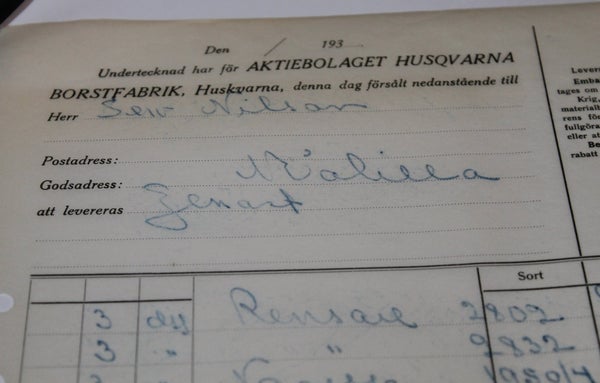 Den / 193
Undertecknad har för AKTIEBOLAGET HUSQVARNA
BORSTFABRIK, Huskvarna, denna dag försålt nedanstående till
Herr Sew Nilson
Postadress:
Målilla
Godsadress:
att levereras Genast
Sort
3 dss Rensare 2802
3 " " 9832
1950/4
Levere
Emba
tages om
Krig,
materialb
rens för
fullgöra
eller at
Be
rabatt